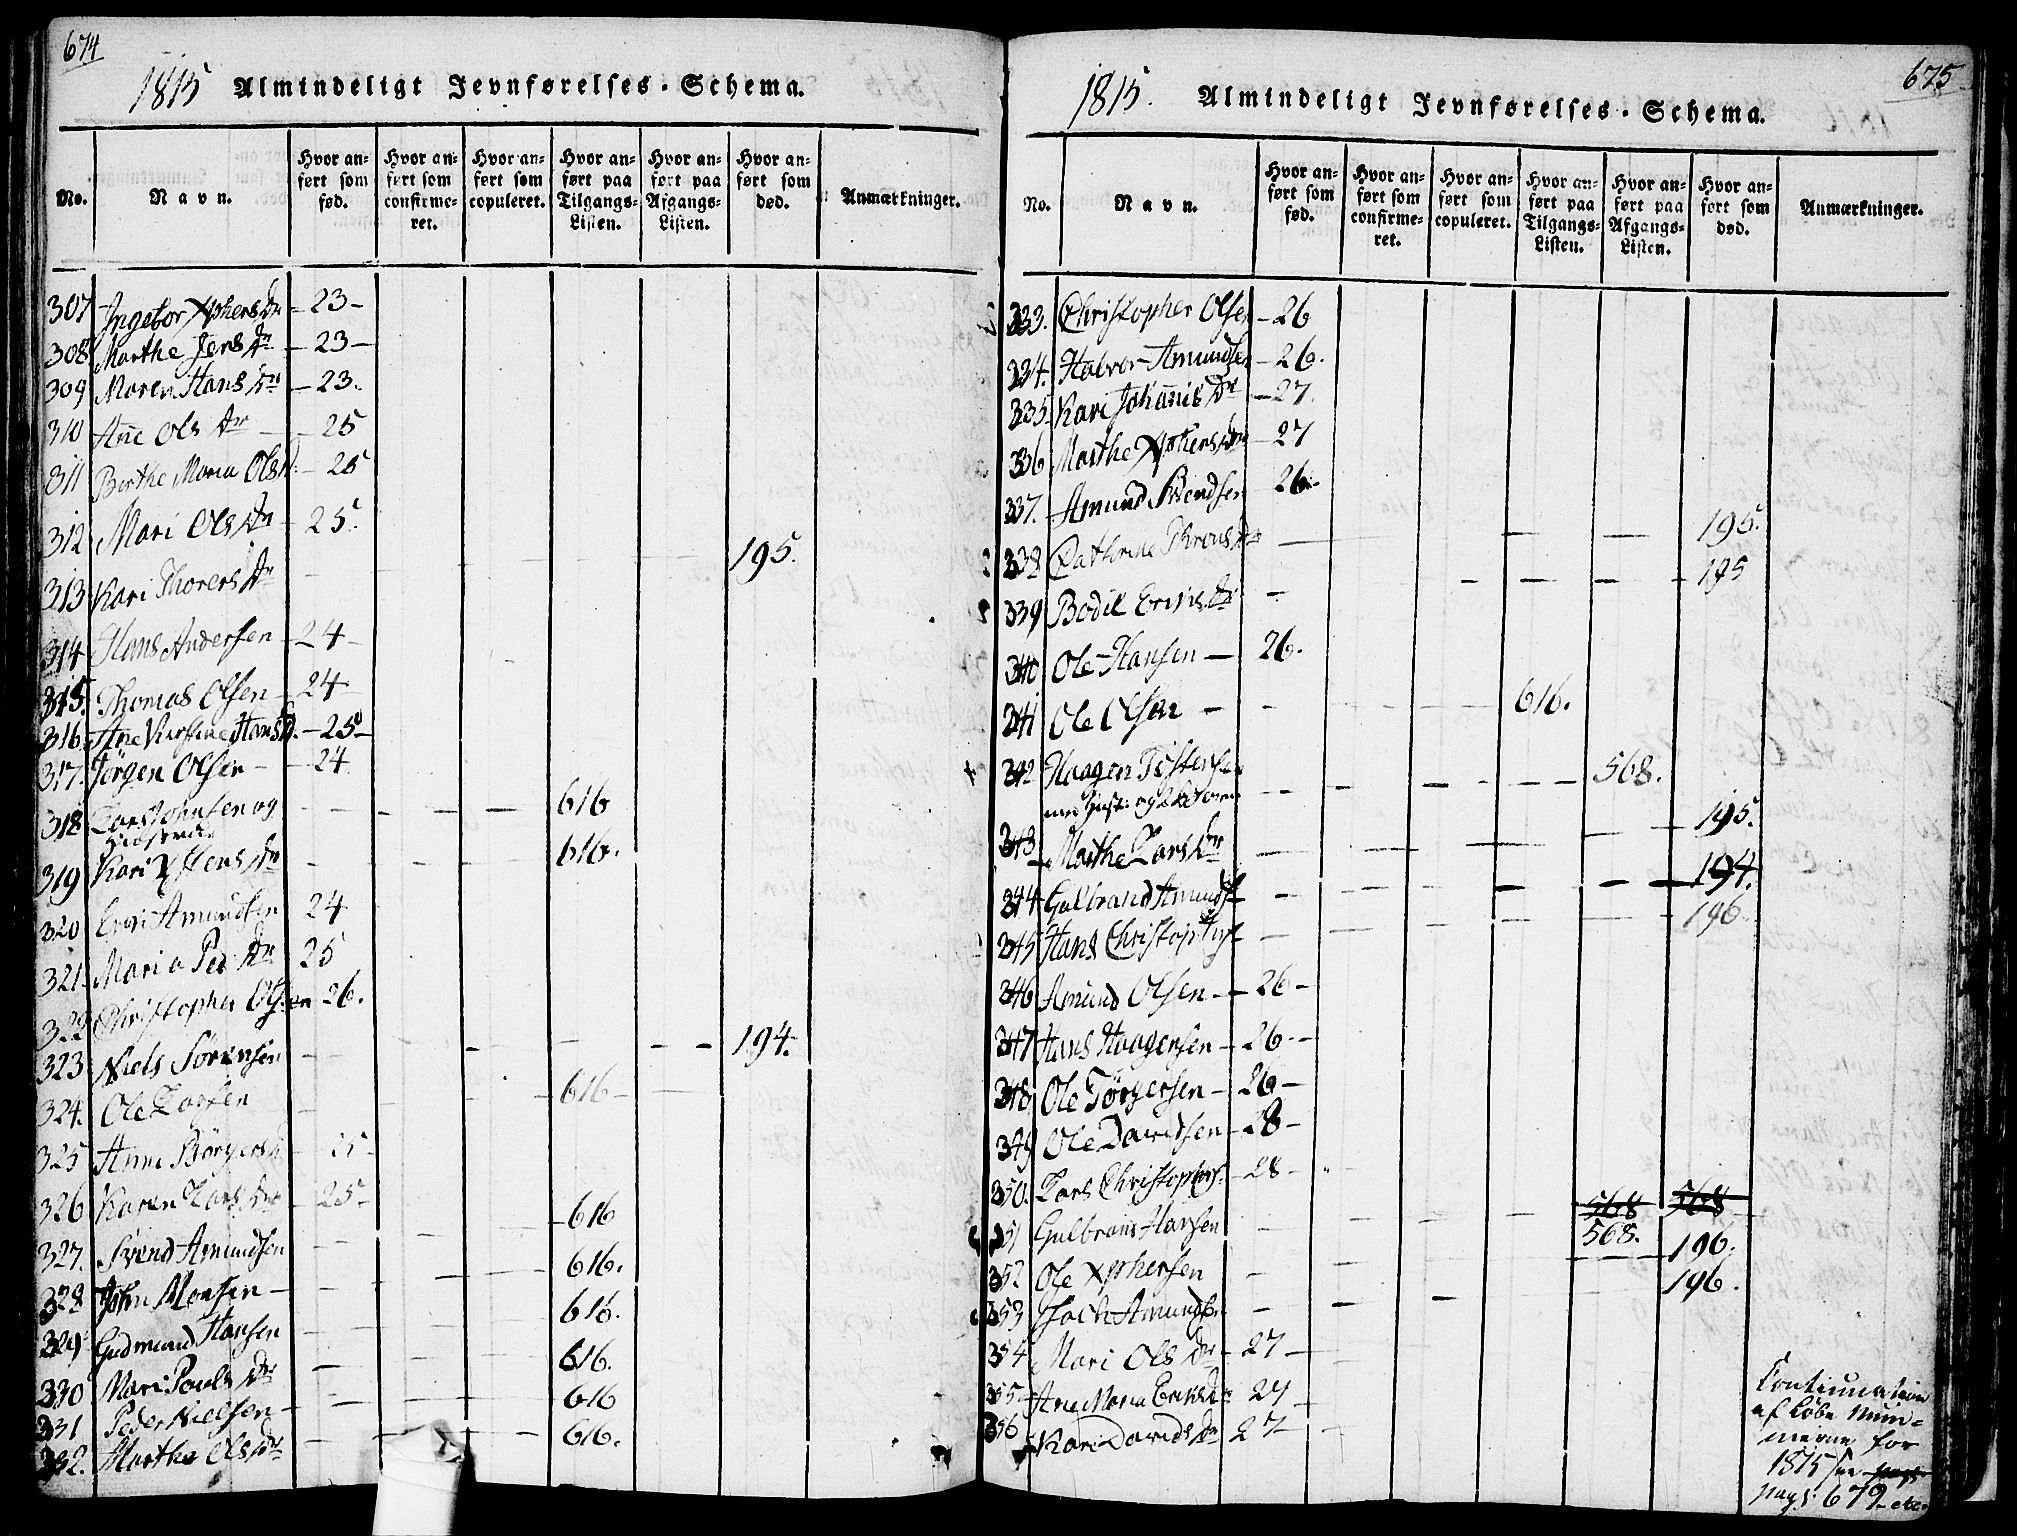 674
1815 Almindeligt Jevnførelses-Schema.
No.
Navn.
Hvor an-
ført som
fød.
Hvor an-
ført som
confirme-
ret.
Hvor an-
ført som
copuleret.
Hvor an-
ført paa
Tilgangs-
Listen.
Hvor an-
ført paa
Afgangs-
Listen.
Hvor an-
ført som
død.
Anmærkninger.
307 Ingebor Xphers Dr - 23 -
308 Marthe Jens Dr - 23 -
309 Maren Hans Dr - 23.
310 Ane Ols Dr - 25
311 Berthe Maria Ols D. - 25
312 Mari Ols Dr - 25.
313 Kari Thorers Dr - 195.
314 Hans Andersen - 24 -
315. Thomas Olsen - 24
316. Ane Kirstine Hans D. - 25 -
317. Jörgen Olsen - 24
318 Lars Johnsen og - 616
Hustrue
319 Kari Dr - 616.
320 Amundsen 24
321. Maria Ped: Dr 25
322 Christopher Olsen 26.
323 Niels Sörensen - 194.
324. Ole Larsen 616 -
325 Anne Börgers D - 25 -
326 Karen Lars Dr - 25 -
327. Svend Amundsen - 616
328 John Monsen - 616.
329 Gudmund Hansen - 616.
330 Mari Pouls Dr - 616.
331 Peder Nielsen - 616
332. Marthe Ols Dr - 616.
675
1815. Almindeligt Jevnførelses-Schema.
No.
Navn.
Hvor an-
ført som
fød.
Hvor an-
ført som
confirme-
ret.
Hvor an-
ført som
copuleret.
Hvor an-
ført paa
Tilgangs-
Listen.
Hvor an-
ført paa
Afgangs-
Listen.
Hvor an-
ført som
død.
Anmærkninger.
333. Christopher Olsen - 26
334. Halvor Amundsen - 26.
335. Kari Johannis Dr - 27.
336 Marthe Xphers Dr - 27
337. Amund Svendsen 26 -
338 Cathrine Dr - 195.
339 Bodil Eriks Dr - 195
340 Ole Hansen - 26.
341 Ole Olsen - 616.
342 Haagen Töstensen - 568.
med Hust: og
343 Marthe Lars Dr - 195.
344 Gulbrand Amunds - 194.
345 Hans Christophers - 196
346 Amund Olsen - 26 -
347 Hans Haagensen - 26 -
348 Ole Törgersen - 26 -
349 Ole Davidsen - 28 -
350. Lars Christophers. - 28 -
568 568
351 Gulbrans Hansen - 568.
352 Ole Xphersen - 196.
353 Amundsen - 196.
354 Mari Ols Dr - 27 -
355 Ane Maria Eriks Dr 27 -
356 Kari Davids Dr 27 -
Continuation
af Löbe Num-
merne for
1815 see
pag: 679 etc.